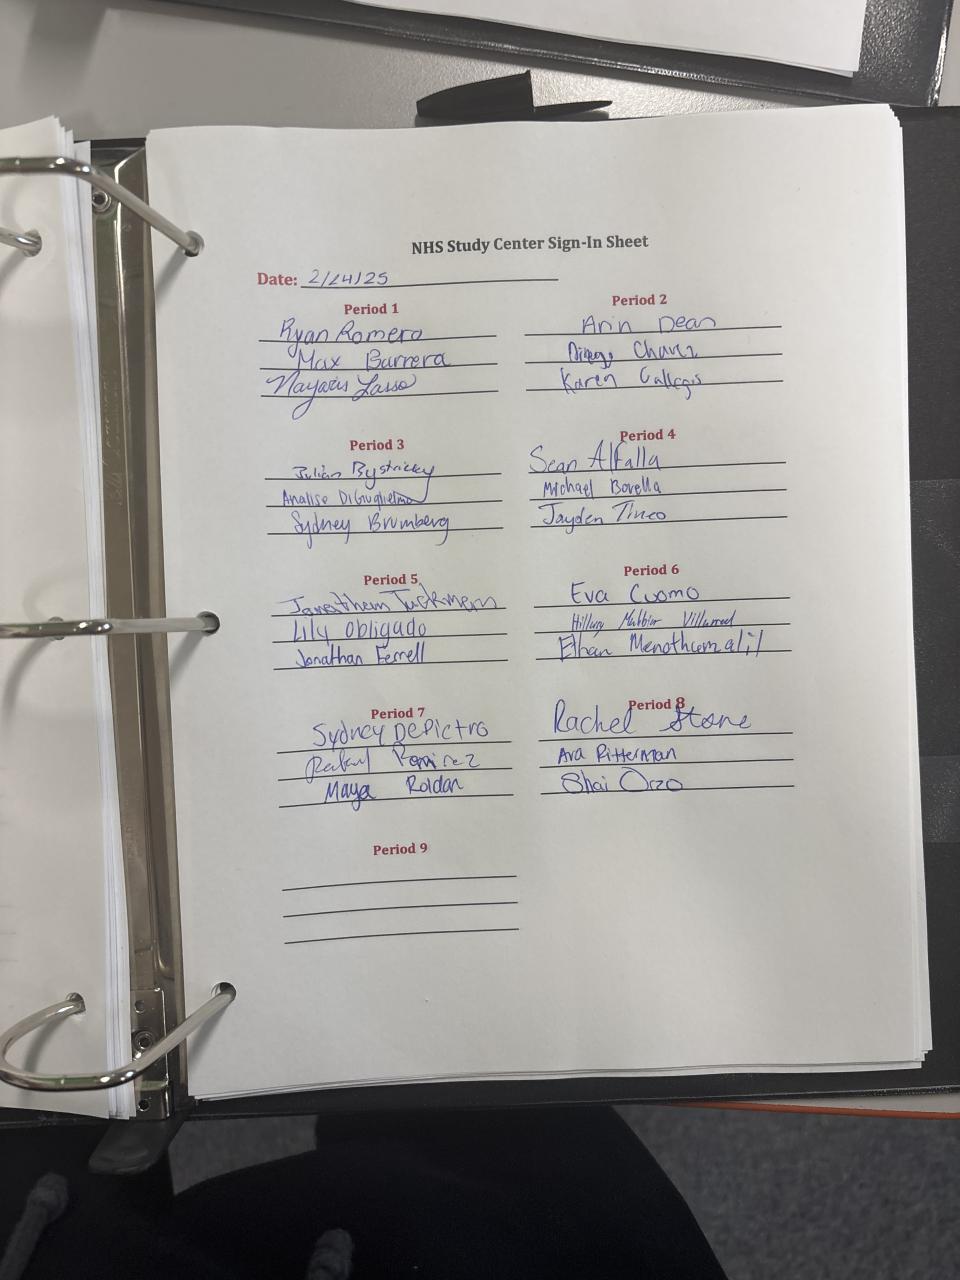 NHS Study Center Sign-In Sheet
Date: 2/24/25
Period 1
Ryan Romero
Max Barrera
Lasso
Period 2
Arin Dean
Chavez
Karen Gallegos
Period 3
Julian Bystricky
Analise DiGuglielmo
Sydney Brumberg
Period 4
Sean Alfalla
Michael Bovella
Jayden Tineo
Period 5
Jonathan Tuckman
Lily Obligado
Jonathan Ferrell
Period 6
Eva Cuomo
Hillary
Ethan Menothumalil
Period 7
Sydney DePietro
Ramirez
Maya Roldan
Period 8
Rachel Stone
Ava Ritterman
Shai Orzo
Period 9